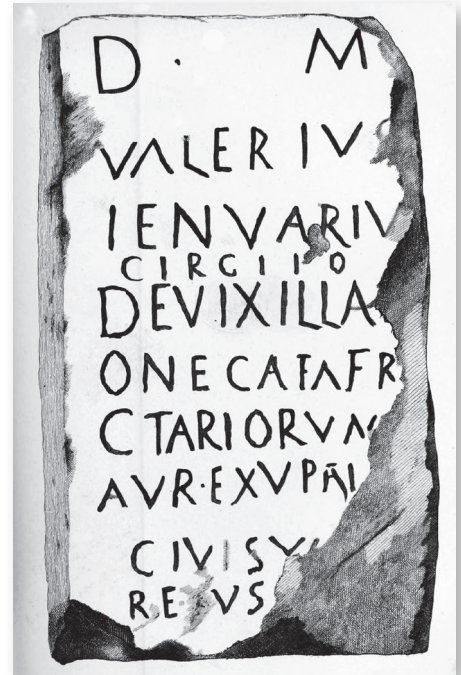 D · M
VALERIV
IENVARIV
CIRCIIO
DEVIXILLA
ONECATAFR
CTARIORVM
AVR·EXVPĀI
CIVISV